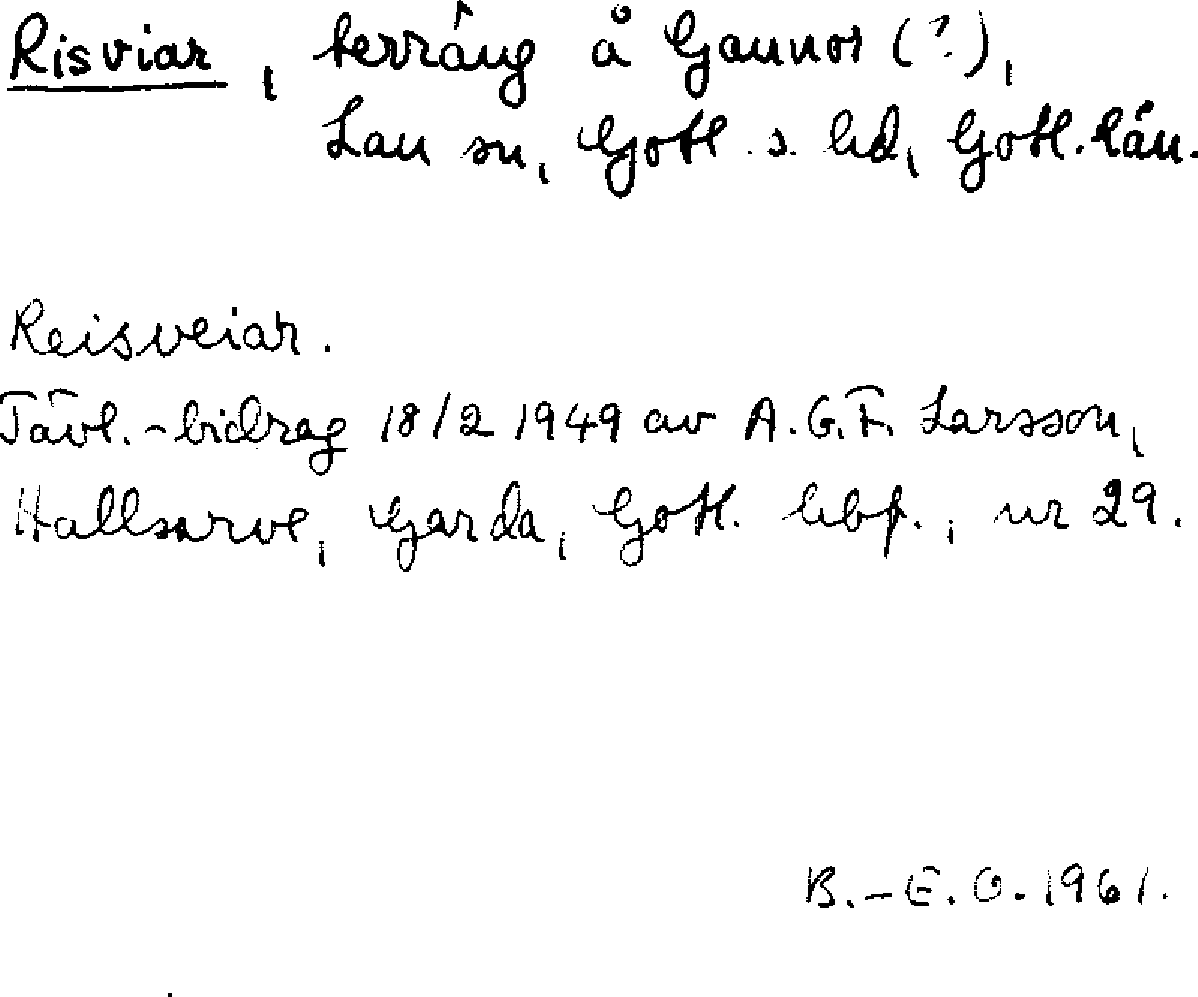 Risviar, terräng å Gaunor (?),
Lau sn, Gotl. s. hd, Gotl. län.
Reisveiar.
Tävl.-bidrag 18/2 1949 av A.G.F. Larsson,
Hallsarve, Garda, Gotl. hbf., nr 29.
B.-E. O. 1961.